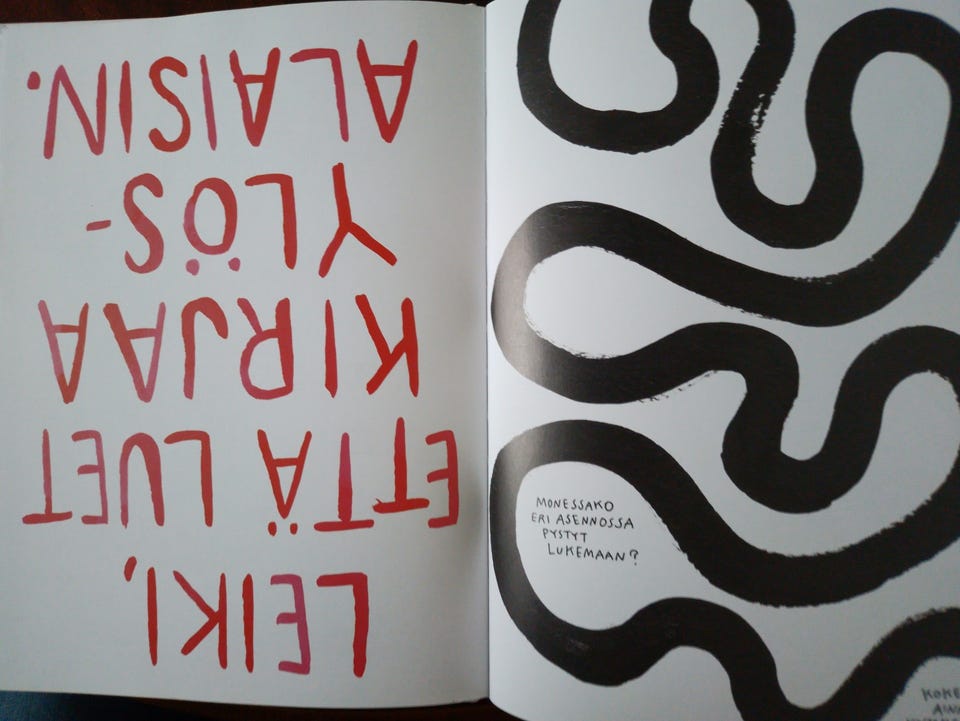 LEIKI,
ETTÄ LUET
KIRJAA
YLÖS-
ALAISIN.
MONESSAKO
ERI ASENNOSSA
PYSTYT
LUKEMAAN?